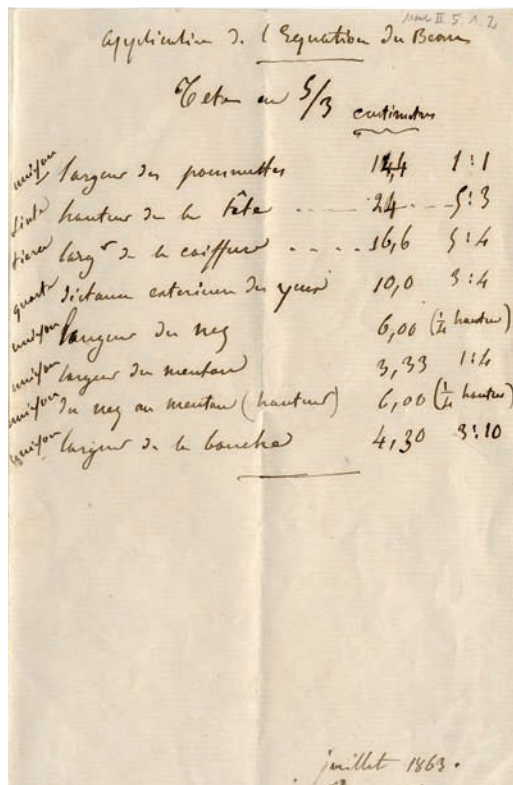 Mul II. 5. 1. 2
Application de l'Equation du Beau
Tetes en 5/3 centimetres
unisson largeur des pommettes 14,4 1:1
sixte hauteur de la tête 24 5:3
tierce largr de la coiffure 16,6 5:4
quarte distance exterieure des yeux 10,0 3:4
unisson longueur du nez 6,00 (1/4 hauteur)
unisson largeur du menton 3,33 1:4
unisson du nez au menton (hauteur) 6,00 (1/4 hauteur)
largeur de la bouche 4,30 3:10
juillet 1863.